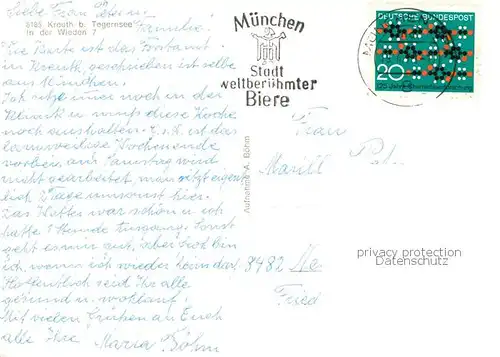 Liebe Frau Peters u.
Familie!
8185 Kreuth b. Tegernsee
In der Wiedon 7
Die Karte ist das Forstamt
in Kreuth, geschrieben ist selbe
aus München.
Ich sitze immer noch in der
Klinik u. muß diese Woche
noch aushalten. Z. Zt. ist das
langweilige Wochenende
vorbei, am Samstag wird
nicht gearbeitet, man sitzt eigent
lich 2 Tage umsonst hier.
Das Wetter war schön u. ich
hatte Stunde Ausgang. Sonst
geht es mir gut, aber froh bin
ich, wenn ich wieder heim darf.
Hoffentlich seid Ihr alle
gesund u. wohlauf.
Mit vielen Grüßen an Euch
alle Ihre Maria Böhm
München
Stadt
weltberühmter
Biere
DEUTSCHE BUNDESPOST
20
Aufnahme A. Böhm
Frau
8482
privacy protection
Datenschutz